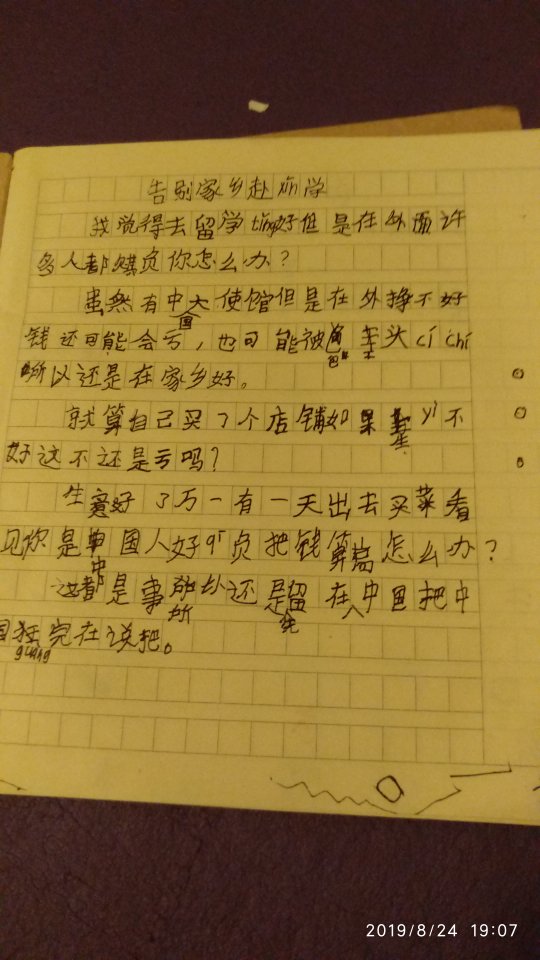 告别家乡赴 学
我觉得去留学ting好但是在外面许
多人都欺负你怎么办？
虽然有中国大使馆但是在外挣不好
钱还可能会亏，也可能被 头cí chí
所以还是在家乡好。
就算自己买了个店铺如果生yì不
好这不还是亏吗？
生意好了万一有一天出去买菜看
见你是中国人好qī负把钱 怎么办？
这都是事所以还是 在中国把中
国 guàng完在说把。
2019/8/24 19:07